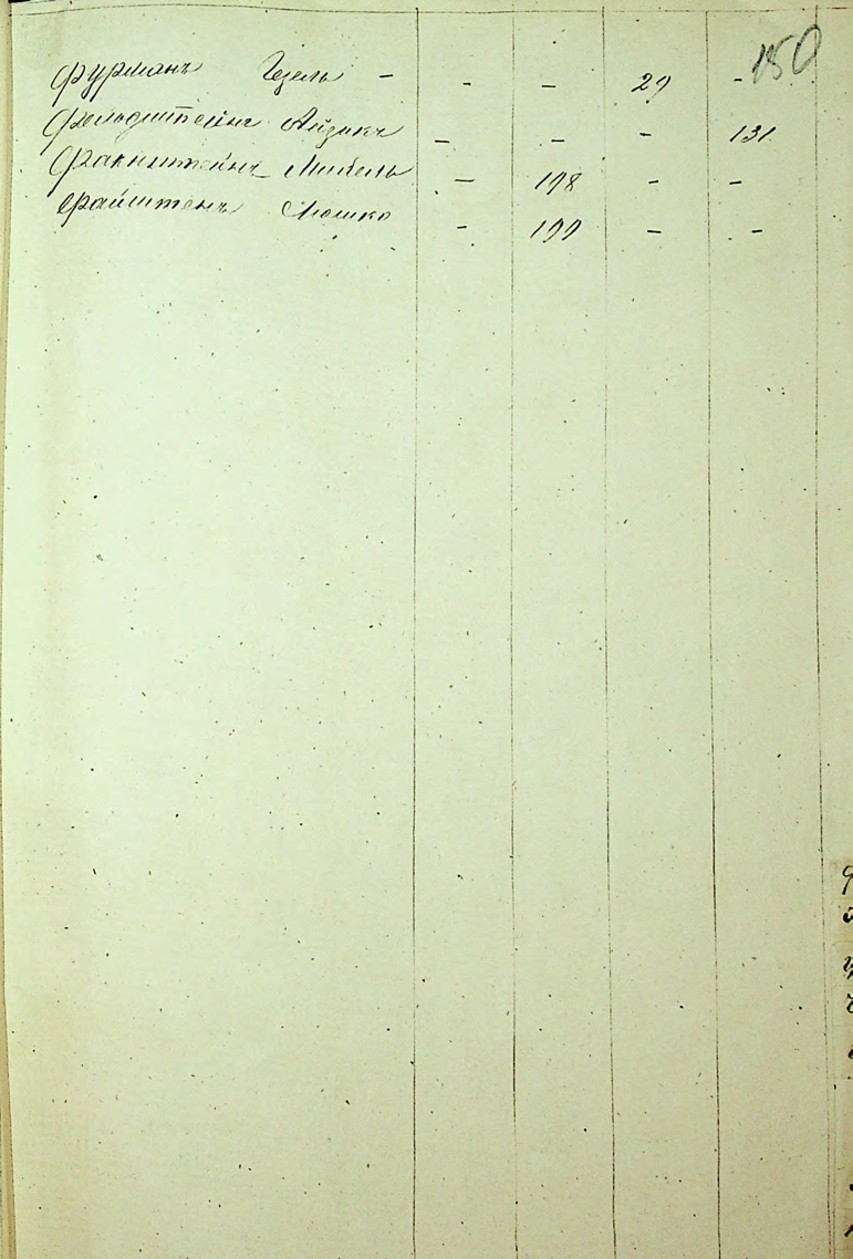 150
Фурманъ Гезель - - - 29 -
Фельдштейнъ Айзикъ - - - 131
Факнштейнъ - 198 - -
Файштенъ Мошко - 199 - -